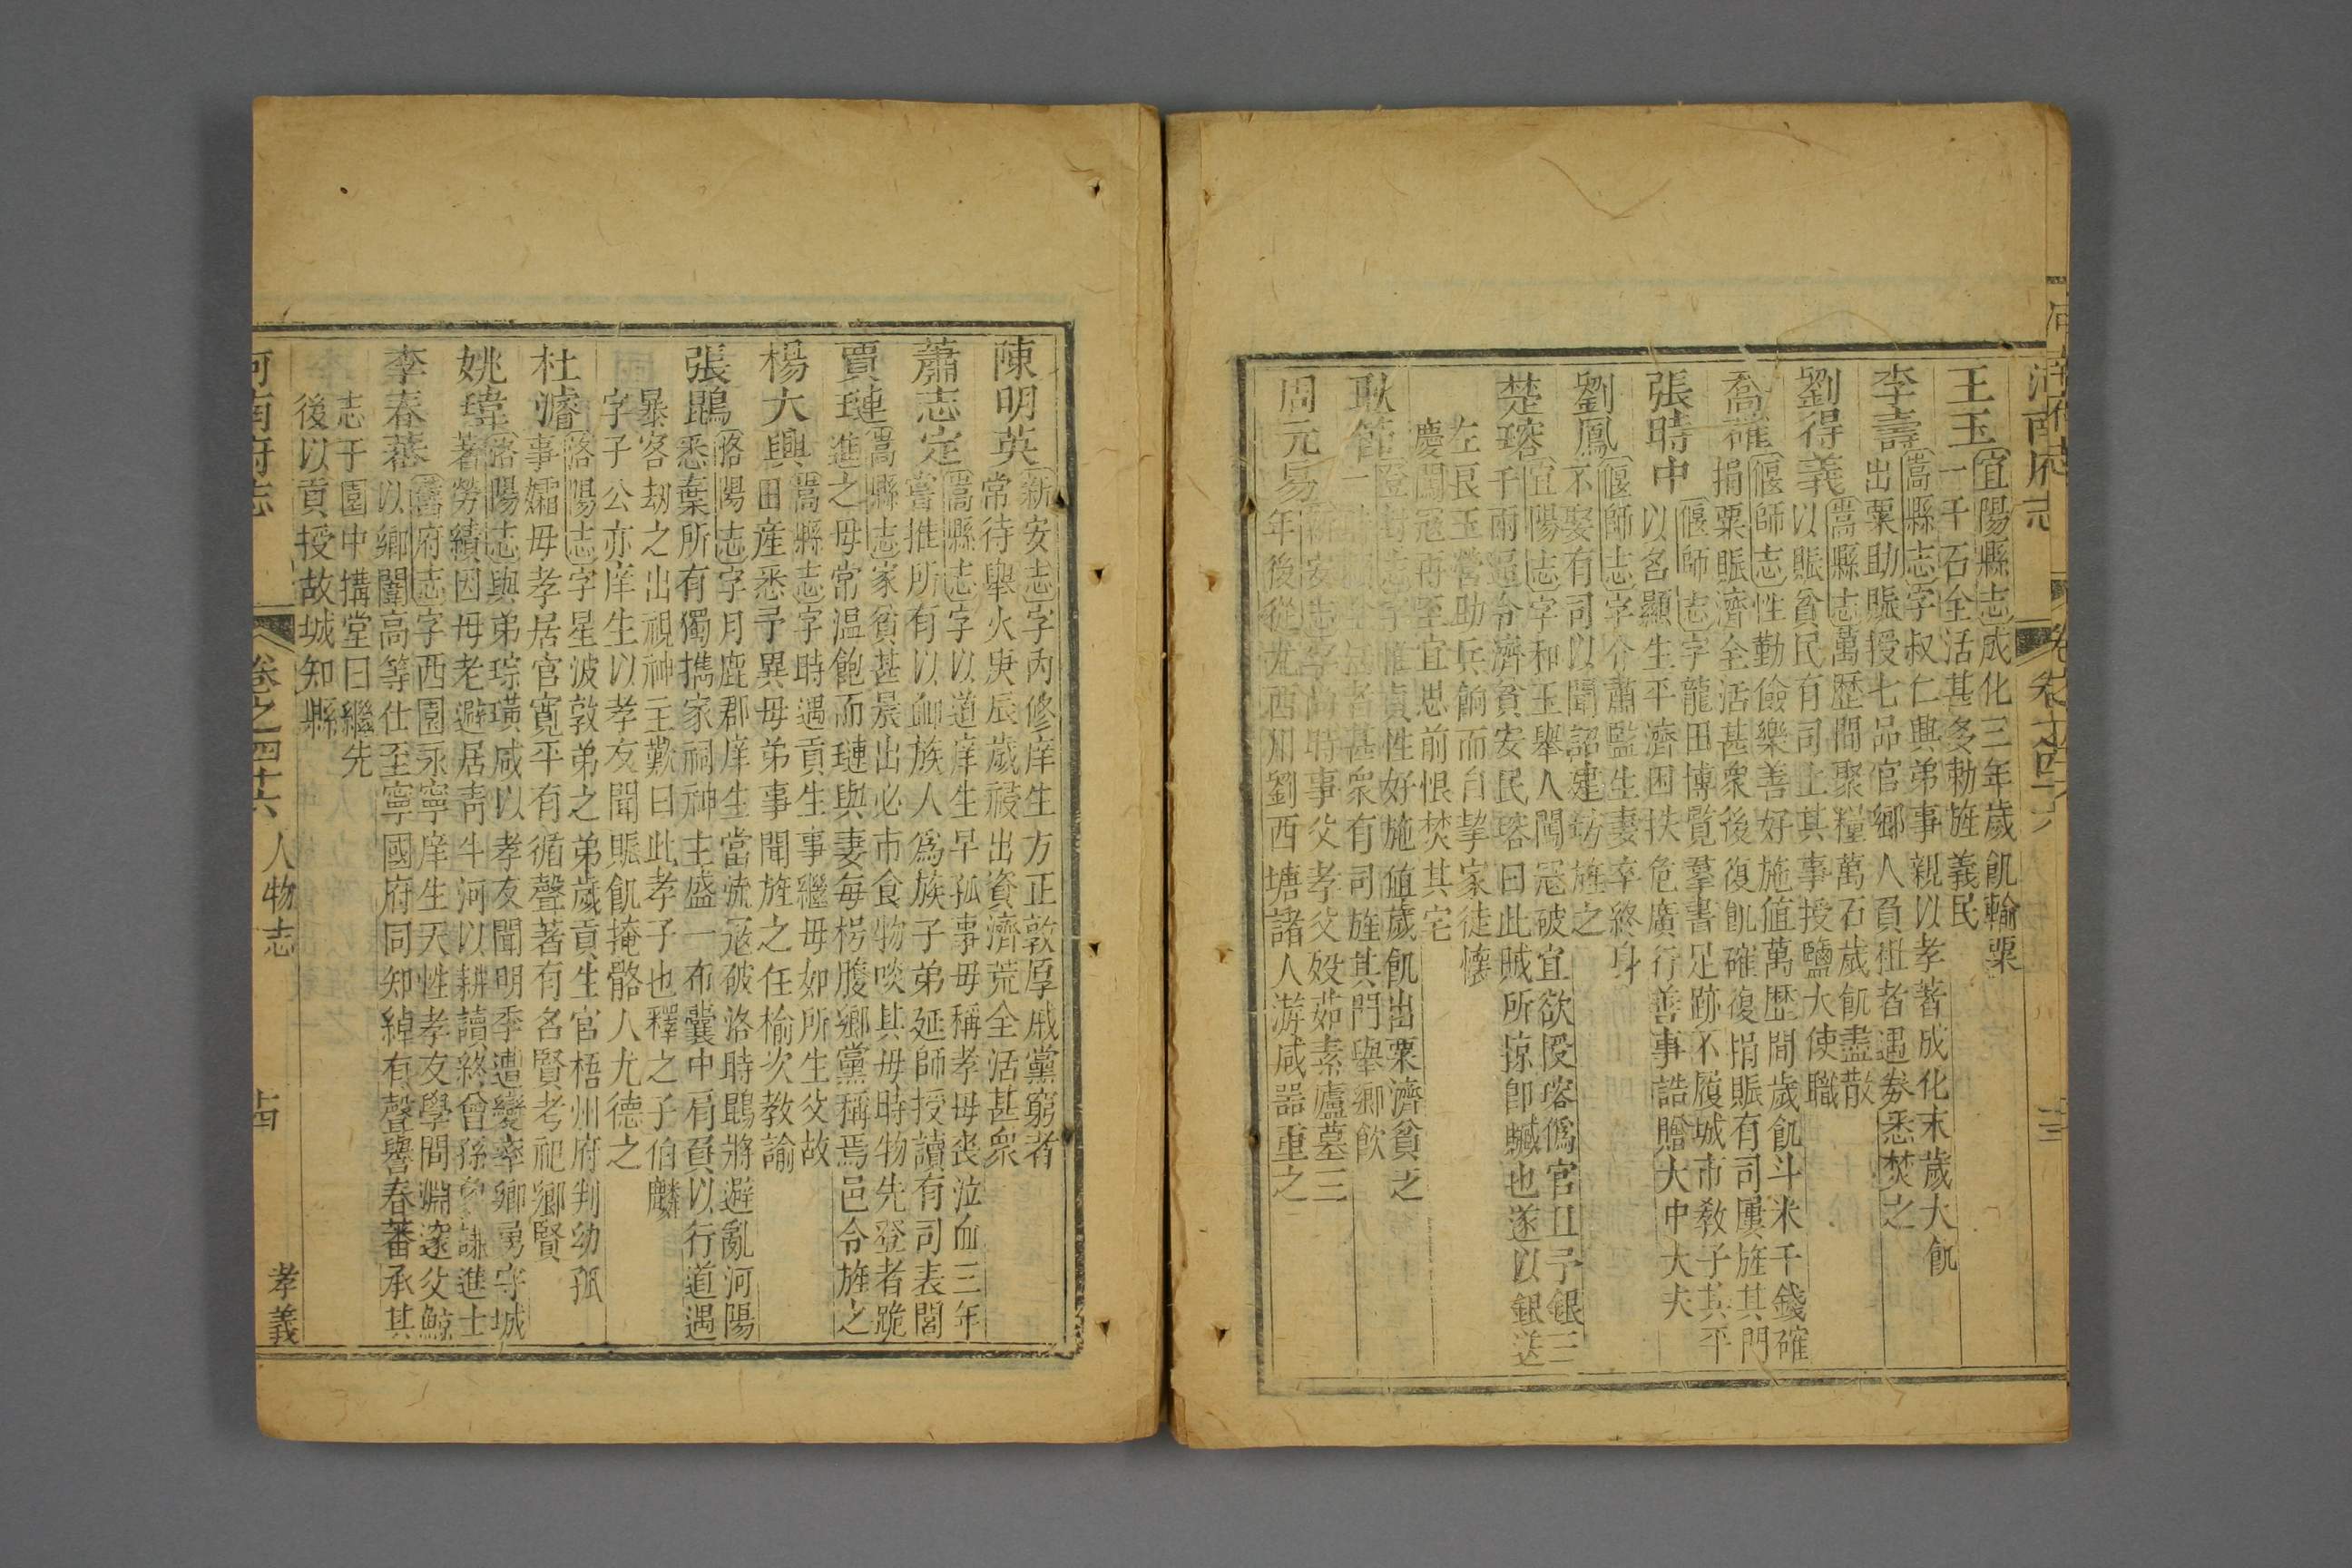 河南府志 卷之四十六 十三
王玉
宜陽縣志成化三年歲飢輸粟
一千石全活甚多勅旌義民
李壽
嵩縣志字叔仁與弟事親以孝著成化末歲大飢
出粟助賑授七品官鄉人負租者遇劵悉焚之
劉得義
嵩縣志萬歷間聚糧萬石歲飢盡散
以賑貧民有司上其事授鹽大使職
喬確
偃師志性勤儉樂善好施值萬歷間歲飢斗米千錢確
捐粟賑濟全活甚衆後復飢確復捐賑有司屢旌其門
張時中
偃師志字龍田博覽羣書足跡不履城市敎子其平
以名顯生平濟困扶危廣行善事誥贈大中大夫
劉鳳
偃師志字介蕭監生妻卒終身
不娶有司以聞詔建坊旌之
楚瑢
宜陽志字和玉舉人闖冦破宜欲授瑢僞官且予銀三
千兩逼令濟貧安民瑢曰此賊所掠卽贓也遂以銀送
左良玉營助兵餉而自挈家徒懷
慶闖冦再至宜思前恨焚其宅
耿節
登封志字惟貞性好施值歲飢出粟濟貧乏
一 活者甚衆有司旌其門舉鄉飲
周元易
新安志字 時事父孝父歿茹素廬墓三
年後從尤西川劉西塘諸人游咸器重之
陳明英
新安志字丙修庠生方正敦厚戚黨窮者
常待舉火庚辰歲祲出資濟荒全活甚衆
蕭志定
嵩縣志字以道庠生早孤事毋稱孝毋喪泣血三年
嘗推所有以衈族人爲族子弟延師授讀有司表閭
賈璉
嵩縣志家貧甚晨出必市食物啖其毋時物先登者跪
進之毋常温飽而璉與妻每枵腹鄉黨稱焉邑令旌之
楊大興
嵩縣志字時遇貢生事繼毋如所生父故
田產悉予異毋弟事聞旌之任榆次教諭
張鵾
洛陽志字月鹿郡庠生當流冦破洛時鵾將避亂河陽
悉棄所有獨攜家祠神主盛一布囊中肩負以行道遇
暴客刼之出視神主歎曰此孝子也釋之子伯麟
字子公亦庠生以孝友聞賑飢掩骼人尤德之
杜濬
洛陽志字星波敦弟之弟歲貢生官梧州府判幼孤
事孀毋孝居官寛平有循聲著有名賢考祀鄉賢
姚瑋
洛陽志與弟琮璜咸以孝友聞明季遭變率鄉勇守城
著勞績因毋老避居靑牛河以耕讀終曾孫 謙進士
李春蕃
舊府志字西園永寧庠生天性孝友學問淵邃父鯨
以鄉闈高等仕至寧國府同知綽有聲譽春蕃承其
志于園中搆堂曰繼先
後以貢授故城知縣
河南府志 卷之四十六 人物志 孝義 十四